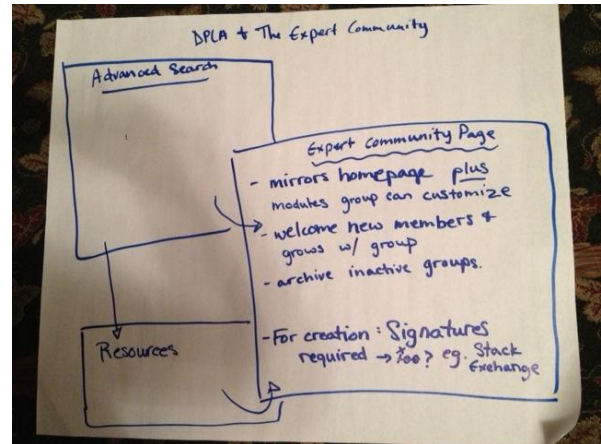 DPLA & The Expert Community
Advanced Search
Expert Community Page
- mirrors homepage plus
modules group can customize
- welcome new members &
grows w/ group
- archive inactive groups.
- For creation : Signatures
required → ? eg. Stack
Exchange
Resources